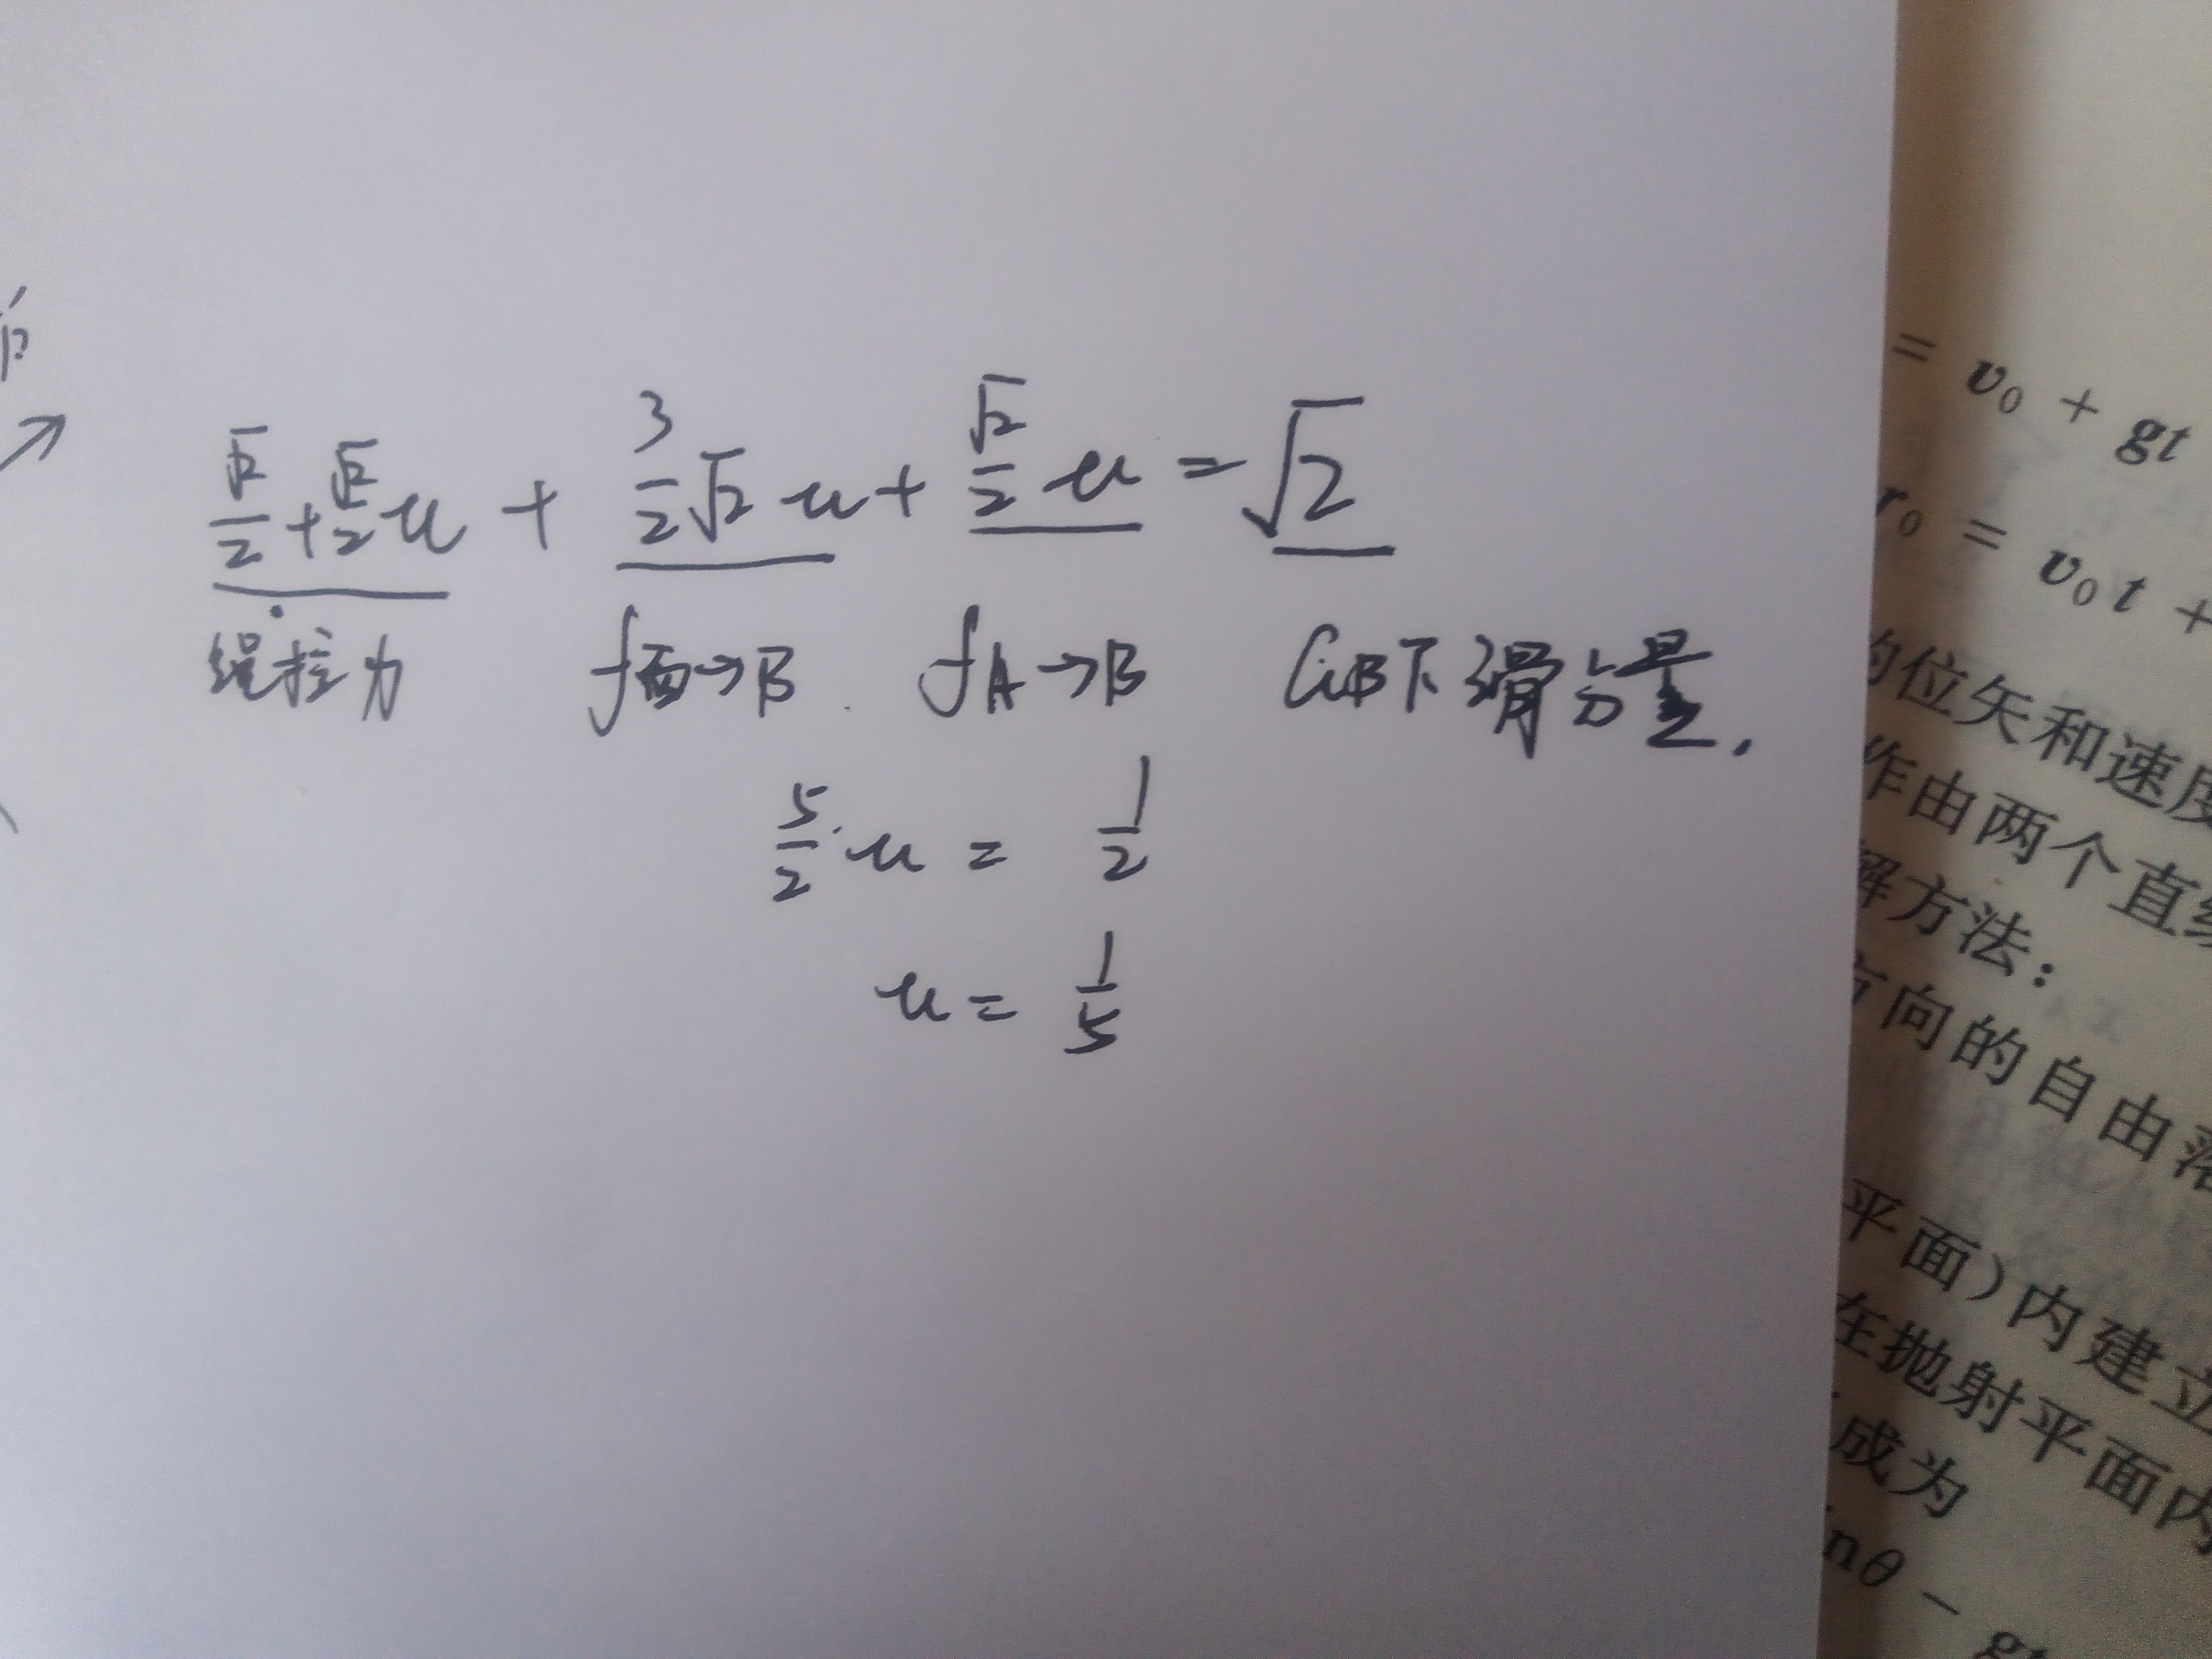 √2/2 + √2/2 u + 3/2 √2 u + √2/2 u = √2
绳拉力 f面→B f A→B GB下滑分量.
5/2 · u = 1/2
u = 1/5
= v₀ + gt
r₀ = v₀t +
的位矢和速度
作由两个直线
解方法:
方向的自由落
平面)内建立
在抛射平面内
成为
nθ − gt